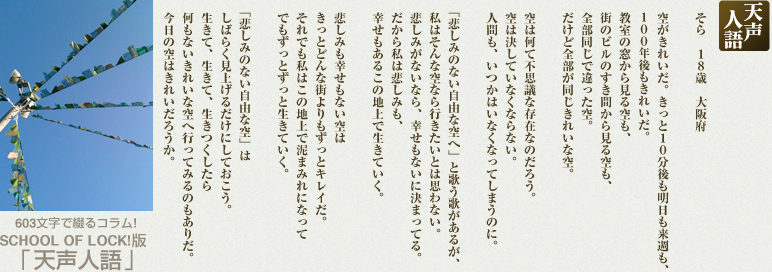 天声人語
そら　18歳　大阪府
空がきれいだ。きっと10分後も明日も来週も、
100年後もきれいだ。
教室の窓から見る空も、
街のビルのすき間から見る空も、
全部同じで違った空。
だけど全部が同じきれいな空。
空は何て不思議な存在なのだろう。
空は決していなくならない。
人間も、いつかはいなくなってしまうのに。
「悲しみのない自由な空へ」と歌う歌があるが、
私はそんな空なら行きたいとは思わない。
悲しみがないなら、幸せもないに決まってる。
だから私は悲しみも、
幸せもあるこの地上で生きていく。
悲しみも幸せもない空は
きっとどんな街よりもずっとキレイだ。
それでも私はこの地上で泥まみれになって
でもずっとずっと生きていく。
「悲しみのない自由な空」は
しばらく見上げるだけにしておこう。
生きて、生きて、生きつくしたら
何もないきれいな空へ行ってみるのもありだ。
今日の空はきれいだろうか。
603文字で綴るコラム!
SCHOOL OF LOCK!版
「天声人語」